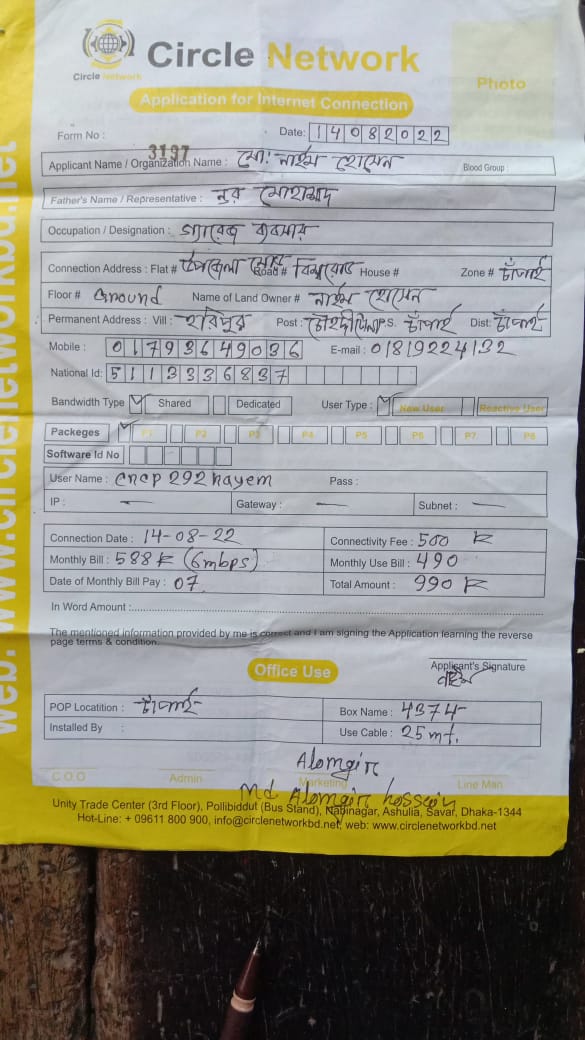 Circle Network
Circle Network
Photo
Application for Internet Connection
Form No : Date: 14082022
3197
Applicant Name / Organization Name : মো: নাইম হোসেন Blood Group :
Father's Name / Representative : নুর মোহাম্মদ
Occupation / Designation : গ্যারেজ ব্যবসায়
Connection Address : Flat # উপজেলা মোড় Road # বিশ্বরোড House # Zone # চাঁপাই
Floor # Ground Name of Land Owner # নাইম হোসেন
Permanent Address : Vill : হরিপুর Post : P.S. চাঁপাই Dist: চাঁপাই
Mobile : 01793649036 E-mail : 01819224132
National Id: 5113336837
Bandwidth Type Shared Dedicated User Type : New User Reactive User
Packeges P1 P2 P3 P4 P5 P6 P7 P8
Software Id No
User Name : cncp292nayem Pass :
IP : — Gateway : — Subnet : —
Connection Date : 14-08-22 Connectivity Fee : 500 K
Monthly Bill : 588 K (6mbps) Monthly Use Bill : 490
Date of Monthly Bill Pay : 07 Total Amount : 990 K
In Word Amount :
The mentioned information provided by me is correct and I am signing the Application learning the reverse
page terms & condition.
Applicant's Signature
নাইম
Office Use
POP Locatition : চাঁপাই Box Name : 4374
Installed By : Use Cable : 25mt.
Alomgir
C.O.O Admin Marketing Line Man
Md Alomgir hossain
Unity Trade Center (3rd Floor), Pollibiddut (Bus Stand), Nabinagar, Ashulia, Savar, Dhaka-1344
Hot-Line: + 09611 800 900, info@circlenetworkbd.net, web: www.circlenetworkbd.net
web: www.circlenetworkbd.net